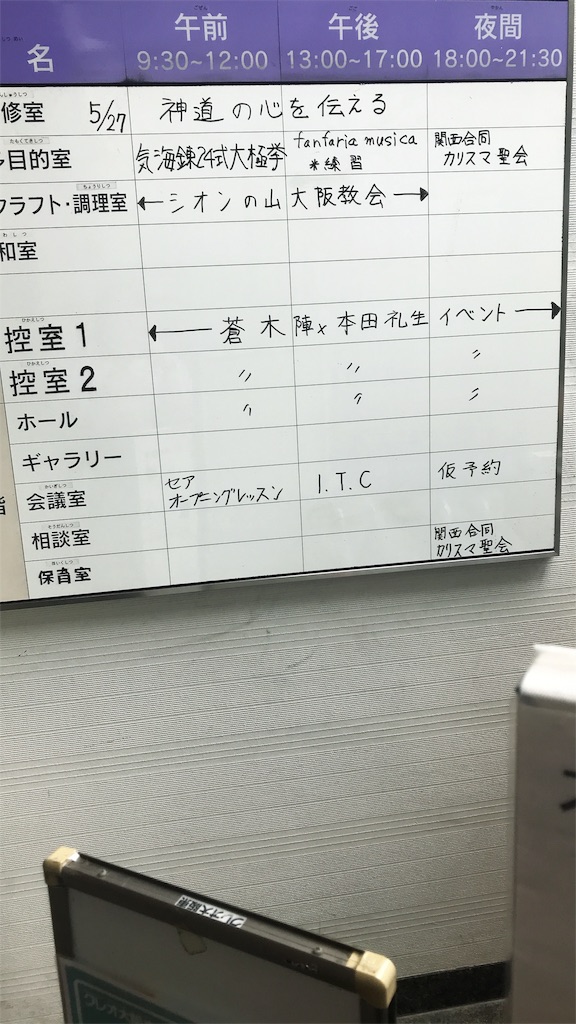 名 午前 午後 夜間
9:30~12:00 13:00~17:00 18:00~21:30
修室 5/27 神道の心を伝える
目的室 気海錬24式大極拳 fanfaria musica 関西合同
*練習 カリスマ聖会
クラフト・調理室 シオンの山 大阪教会
和室
控室1 蒼木 陣×本田礼生 イベント
控室2 〃 〃 〃
ホール 〃 〃 〃
ギャラリー
会議室 セア I.T.C 仮予約
オープニングレッスン
相談室 関西合同
カリスマ聖会
保育室
クレオ大阪東
クレオ大